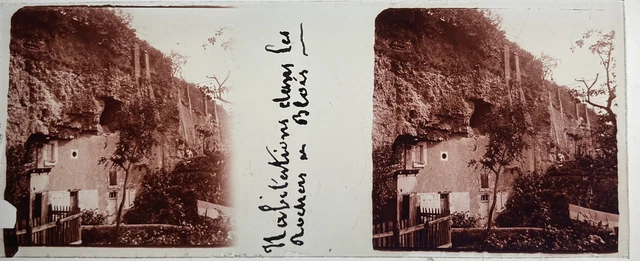 Habitations dans les
Rochers à Blois